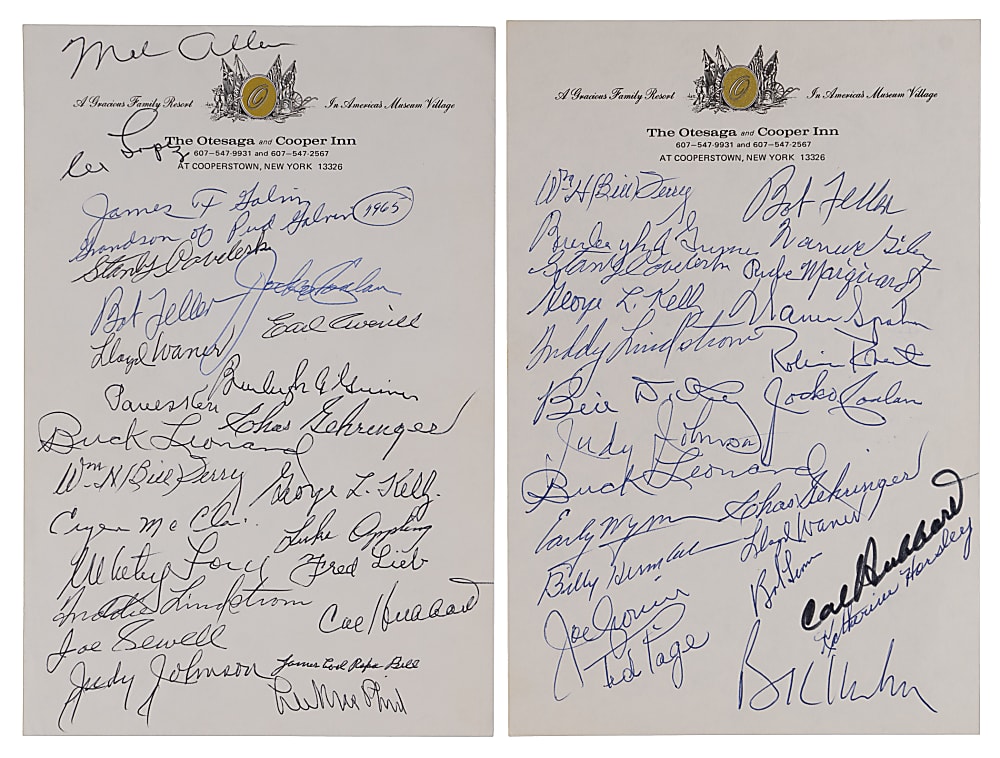 Mel Allen
A Gracious Family Resort
In America's Museum Village
The Otesaga and Cooper Inn
607-547-9931 and 607-547-2567
AT COOPERSTOWN, NEW YORK 13326
Lopez
James F Galvin
Grandson of Pud Galvin 1965
Stanley Coveleski
Jocko Conlan
Bob Feller
Earl Averill
Lloyd Waner
Burleigh A Grimes
Buck Leonard
Chas Gehringer
Wm H (Bill) Terry
George L. Kelly
Luke Appling
Fred Lieb
Freddie Lindstrom
Cal Hubbard
Joe Sewell
Judy Johnson
James Cool Papa Bell
A Gracious Family Resort
In America's Museum Village
The Otesaga and Cooper Inn
607-547-9931 and 607-547-2567
AT COOPERSTOWN, NEW YORK 13326
Wm H (Bill) Terry
Bob Feller
Burleigh A Grimes
Warren Giles
Stanley Coveleski
Rube Marquard
George L. Kelly
Warren Spahn
Freddy Lindstrom
Robin Roberts
Bill Dickey
Jocko Conlan
Judy Johnson
Buck Leonard
Chas Gehringer
Early Wynn
Lloyd Waner
Billy Herman
Cal Hubbard
Katharine Hansley
Joe Cronin
Ted Page